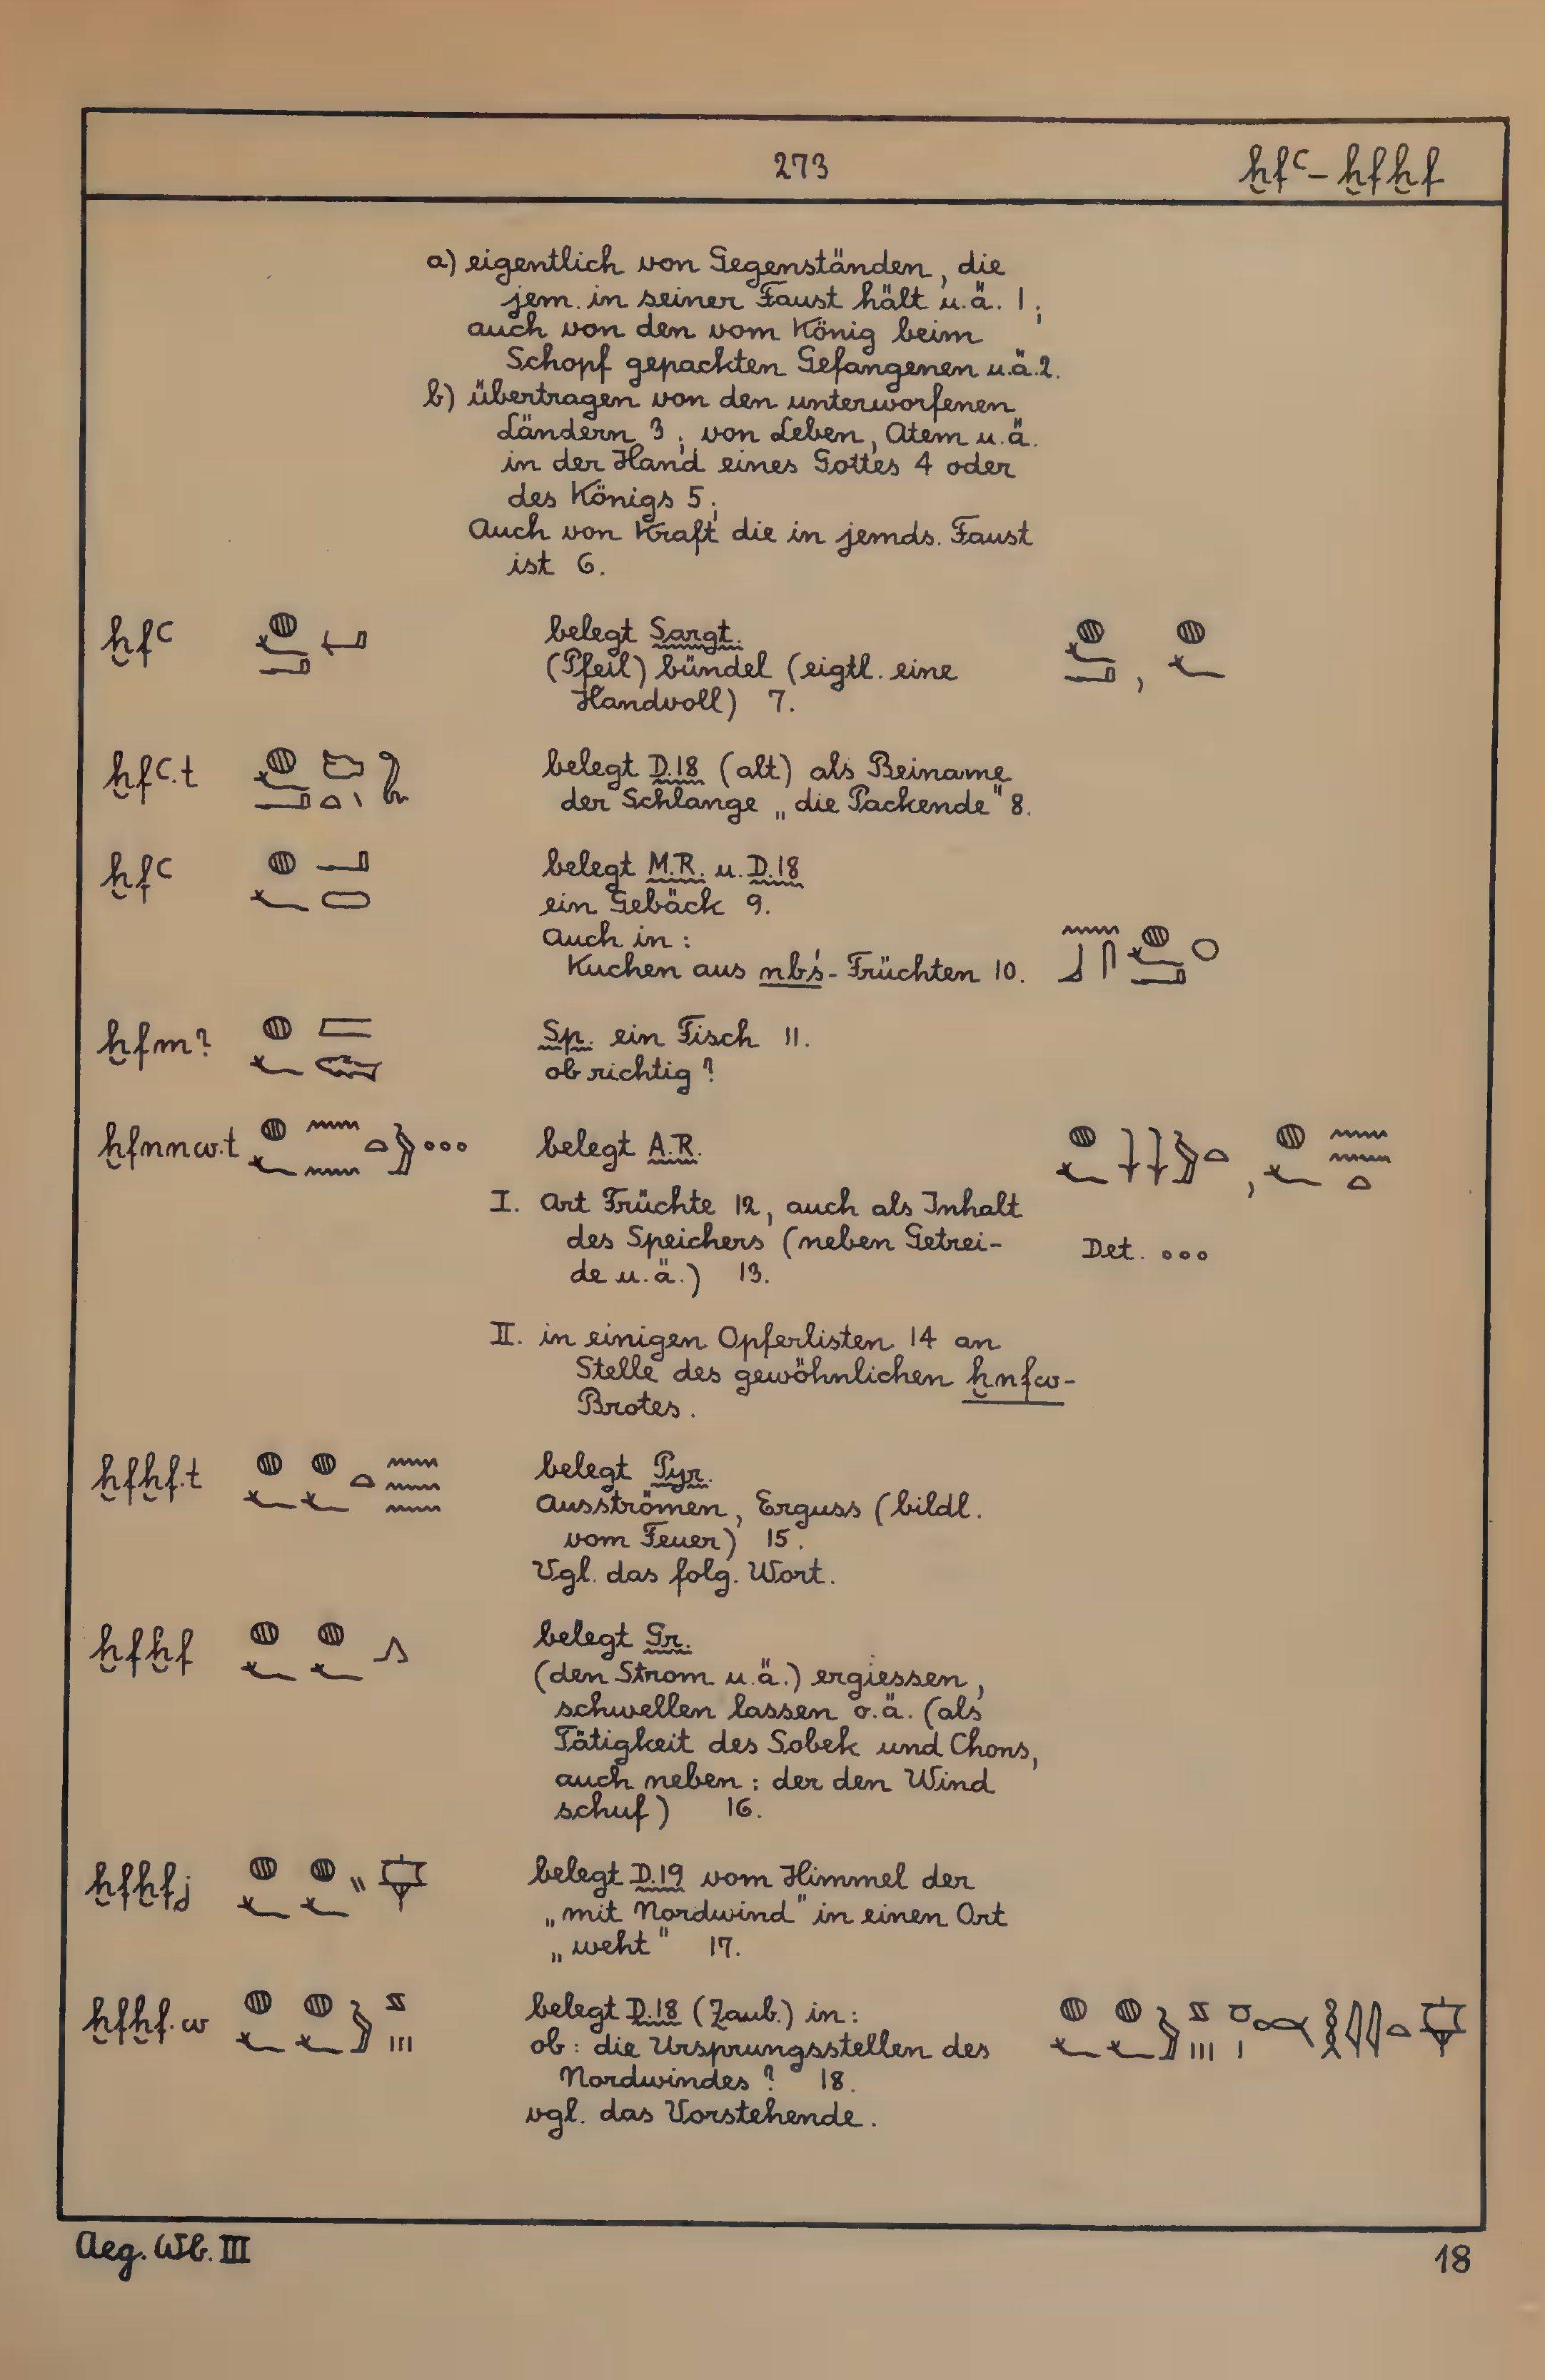 273
ḫfꜥ – ḫfḫf
a) eigentlich von Gegenständen, die
jem. in seiner Faust hält u.ä. 1;
auch von den vom König beim
Schopf gepackten Gefangenen u.ä. 2.
b) übertragen von den unterworfenen
Ländern 3; von Leben, Atem u.ä.
in der Hand eines Gottes 4 oder
des Königs 5;
Auch von Kraft die in jemds. Faust
ist 6.
ḫfꜥ belegt Sargt.
(Pfeil) bündel (eigtl. eine
Handvoll) 7.
ḫfꜥ.t belegt D.18 (alt) als Beiname
der Schlange „die Packende" 8.
ḫfꜥ belegt M.R. u. D.18
ein Gebäck 9.
Auch in:
Kuchen aus nbś-Früchten 10.
ḫfm? Sp. ein Fisch 11.
ob richtig?
ḫfnnw.t belegt A.R.
I. Art Früchte 12, auch als Inhalt
des Speichers (neben Getrei-
de u.ä.) 13.
Det.
II. in einigen Opferlisten 14 an
Stelle des gewöhnlichen ḫnfw-
Brotes.
ḫfḫf.t belegt Pyr.
Ausströmen, Erguss (bildl.
vom Feuer) 15.
Vgl. das folg. Wort.
ḫfḫf belegt Gr.
(den Strom u.ä.) ergiessen,
schwellen lassen o.ä. (als
Tätigkeit des Sobek und Chons,
auch neben: der den Wind
schuf) 16.
ḫfḫfj belegt D.19 vom Himmel der
„mit Nordwind" in einen Ort
„weht" 17.
ḫfḫf.w belegt D.18 (Zaub.) in:
ob: die Ursprungsstellen des
Nordwindes? 18.
vgl. das Vorstehende.
Aeg. Wb. III
18